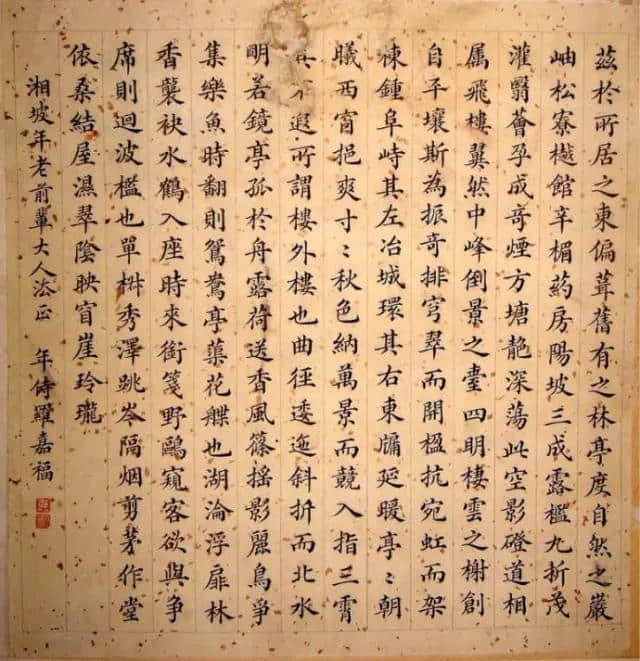 茲於所居之東偏葺舊有之林亭度自然之巖
岫松寮樾館辛楣葯房陽坡三成露檻九折茂
灌翳薈孕成奇煙方塘艶深蕩此空影磴道相
属飛樓翼然中峰倒景之臺四明棲雲之榭創
自平壤斯為振奇排穹翠而開楹抗宛虹而架
棟鍾阜峙其左冶城環其右東牖延暖亭〻朝
曦西窗挹爽寸〻秋色納萬景而競入指三霄
不遐所謂樓外樓也曲徑逶迤斜折而北水
明若鏡亭孤於舟露荷送香風篠揺影麗鳥爭
集樂魚時翻則鴛鴦亭蕖花艓也湖淪浮扉林
香襲袂水鶴入座時來銜箋野鷗窺客欲與争
席則迴波檻也單椒秀澤跳岑隔烟剪茅作堂
依桑結屋濕翠陰映窗崖玲瓏
湘坡年老前輩大人法正 年侍羅嘉福